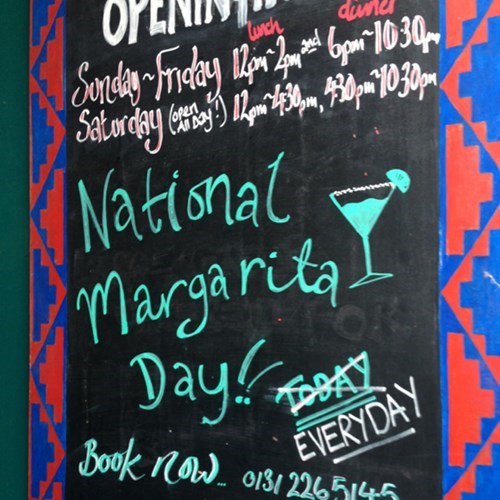 OPENIN
lunch dinner
Sunday~Friday 12pm~2pm and 6pm~10:30pm
Saturday (open All Day!) 12pm~4:30pm, 4:30pm~10:30pm
National
Margarita
Day!!
TODAY
EVERYDAY
Book now... 0131 226 5145